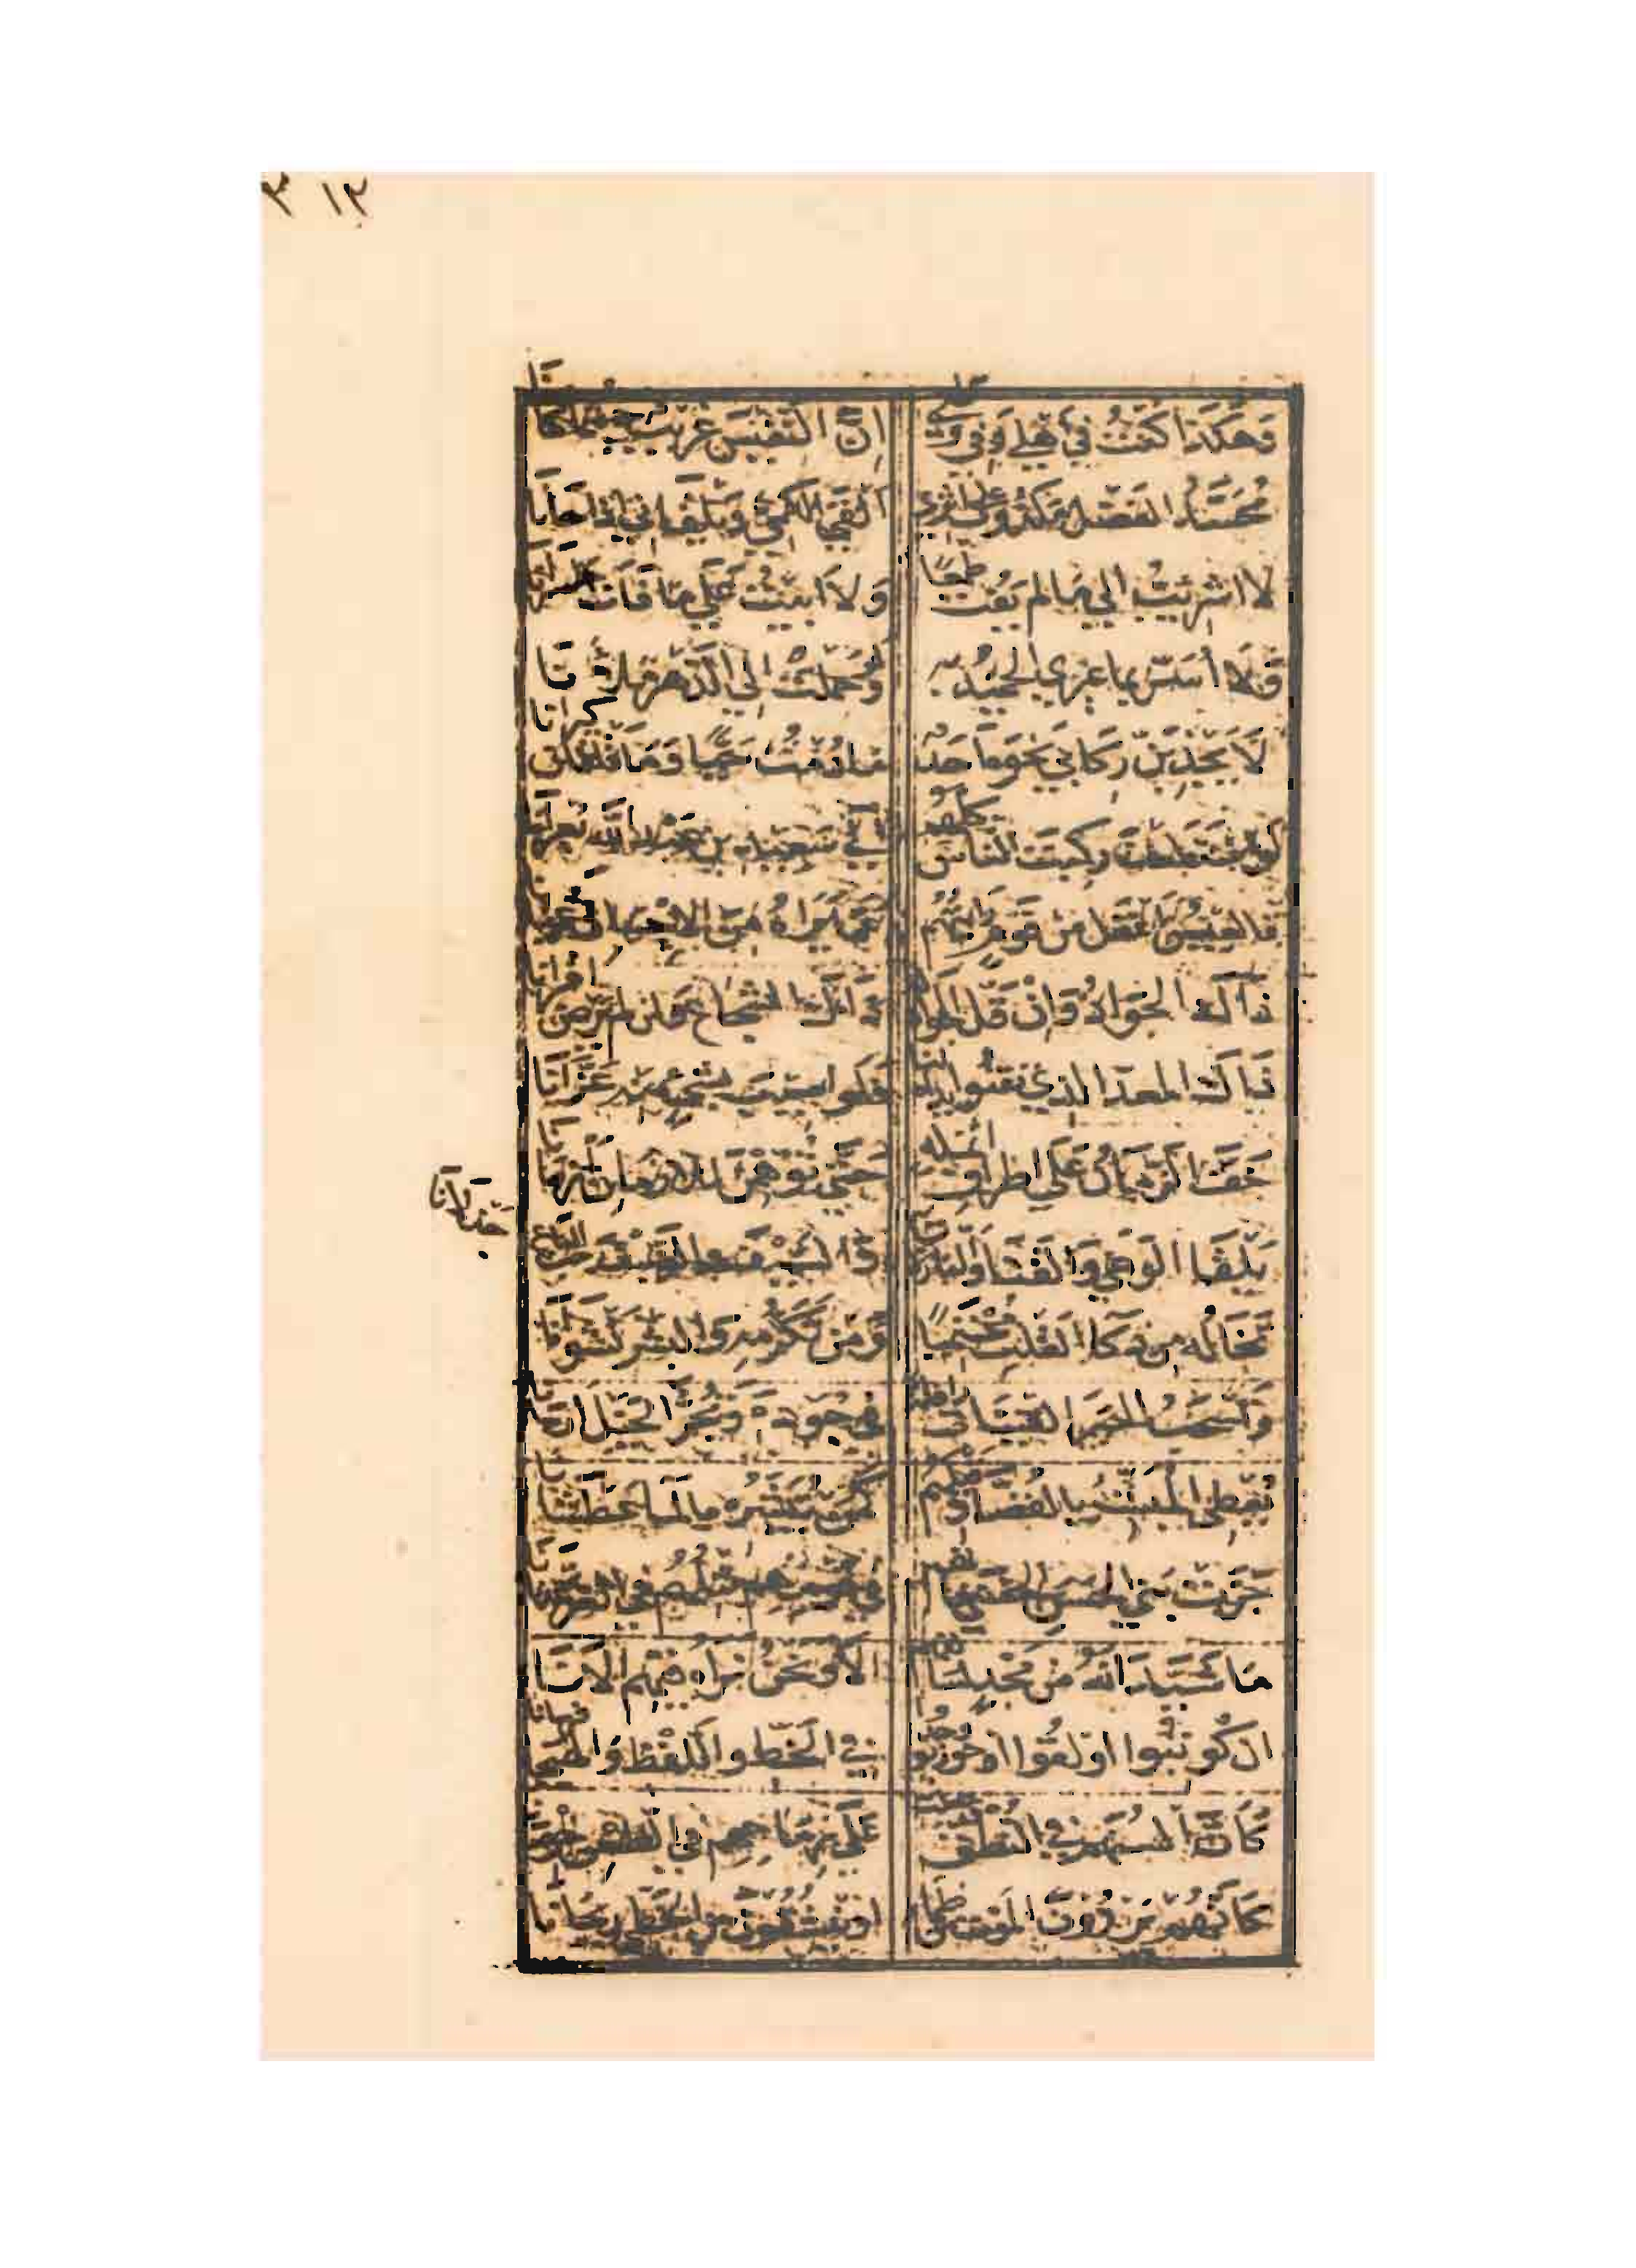 وَهكَذَا كُنْتُ فِي أَهْلِي وَفِي وَطَنِي إنَّ النَّفِيسَ غَرِيبٌ حَيْثُمَا كَانَا
مُحَسَّدُ الفَضْلِ مَكْذُوبٌ عَلَى أَثَرِي أَلْقَى الكَمِيَّ وَيَلْقَانِي إذا حَانَا
لا اشرئبُّ إلى مَا لم يَفُت طَمَعًا وَلا ابِيتُ عَلَى مَا فَاتَ حَسْرَانَا
وَلا أُسَرُّ بما غيري الحميدُ بِهِ وَلَوْ حَمَلْتَ إلى الدَّهْرَ مَلآنَا
لَا يَجْذِبَنَّ رِكَابِي نَحْوَهُ أَحَدٌ مَا دُمْتُ حَيًّا وَمَا قَلْقَلْنَ كِيرَانَا
لو اسْتَطَعْتُ رَكِبْتُ النَّاسَ كُلَّهُمُ إلى سَعِيدِ بنِ عَبْدِ اللَّهِ بُعْرَانَا
فالعِيسُ أَعْقَلُ مِنْ قَوْمٍ رَأَيْتُهُمُ عَمَّا يَرَاهُ مِنَ الاِحْسَانِ عُمْيَانَا
ذَاكَ الجَوَادُ وَإنْ قَلَّ الجَوَادُ لَهُ ذَاكَ الشُّجَاعُ وَإن لم يَرْضَ أقْرَانَا
ذَاكَ المعدّ الذي تَقْنُو يداهُ لنا فَلَو اصِيبَ بِشَيْءٍ مِنْهُ عَزَّانَا
خَفَّ الزَّمَانُ عَلَى اطرافِ أنمله حَتَّى تُوُهِّمْنَ للأَزْمَانِ أزْمَانَا
يَلْقَى الوَغَى وَالقَنَا وَالنَّازِلاتِ به وَالسَّيْفَ والضَّيْفَ رَحْبَ الباع
جَذْلانَا
تَخَالُه مِن ذَكَا القَلْبِ مُحْتَمِيًا وَمِنْ تَكَرُّمِهِ وَالبِشْرِ نَشْوَانَا
وَتَسْحَبُ الحِبَرَ القَيْنَاتُ رافلةً في جُودِهِ وَتَجُرُّ الخَيْلُ ارسَانَا
يُعْطِي المُبَشِّرَ بالقُصَّادِ قبلهم كَمَنْ يُبَشِّرُهُ بالمَاءِ عَطْشَانَا
جَزَتْ بَنِي الحَسَنِ الحُسْنَى فإنّهم في قومهم مثلهم في الغر عدنانا
مَا شَيَّدَ اللهُ مِنْ مَجْدٍ لسالفهم الا وَنَحْنُ نَرَاهُ فِيهِمِ الآنَا
ان كُوتِبُوا او لَقُوا او حُورِبُوا وجدوا فِي الخَطِّ واللَّفْظِ وَالهَيْجَا فرسانا
كَأَنَّ السُنَهُم في النُطْقِ قد جعلت عَلَى رِمَاحِهِم فِي الطَّعْنِ خِرْصَانَا
كَأَنَّهُم يَرِدُونَ المَوْتَ مِن ظَمَأٍ او يَنْشَقُونَ مِنَ الخَطِّيِّ رَيْحَانَا